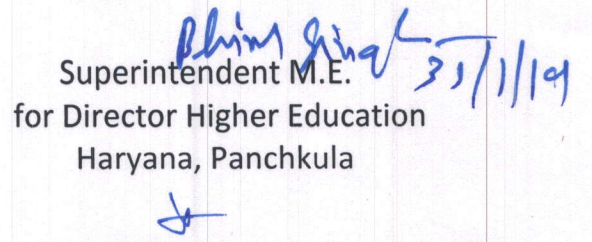 Bhim Singh 31/1/19
Superintendent M.E.
for Director Higher Education
Haryana, Panchkula